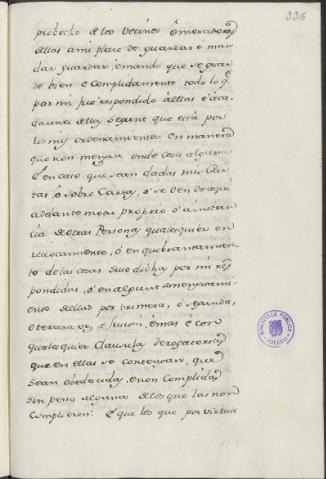 336
probecho de los vecinos é moradores
dellas a mi place de guardar é man
dar guardar é mando que se guar
de bien é complidamente todo lo q.
por mi fue respondido á ellas é á ca
da una dellas segunt que está por
los mis ordenamientos en manera
que non mengue ende cosa alguna
é en caso que sean dadas mis Car
tas ó sobre Cartas, ó se den de aquí
adelante motu proprio ó á instan
cia de otras Personas qualesquier en
revocamiento, ó en quebrantamien
to de las cosas suso dichas por mi res
pondidas, ó en algunt
ento dellas por primera, ó segunda,
ó tercera é jusion, é mas é con
qualesquier Clausulas derogatorias
que en ellas se contengan, que
sean obedecidas, é non complidas
sin pena alguna de los que las non
complieren: É que los que por virtud
BIBLIOTECA PUBLICA
TOLEDO